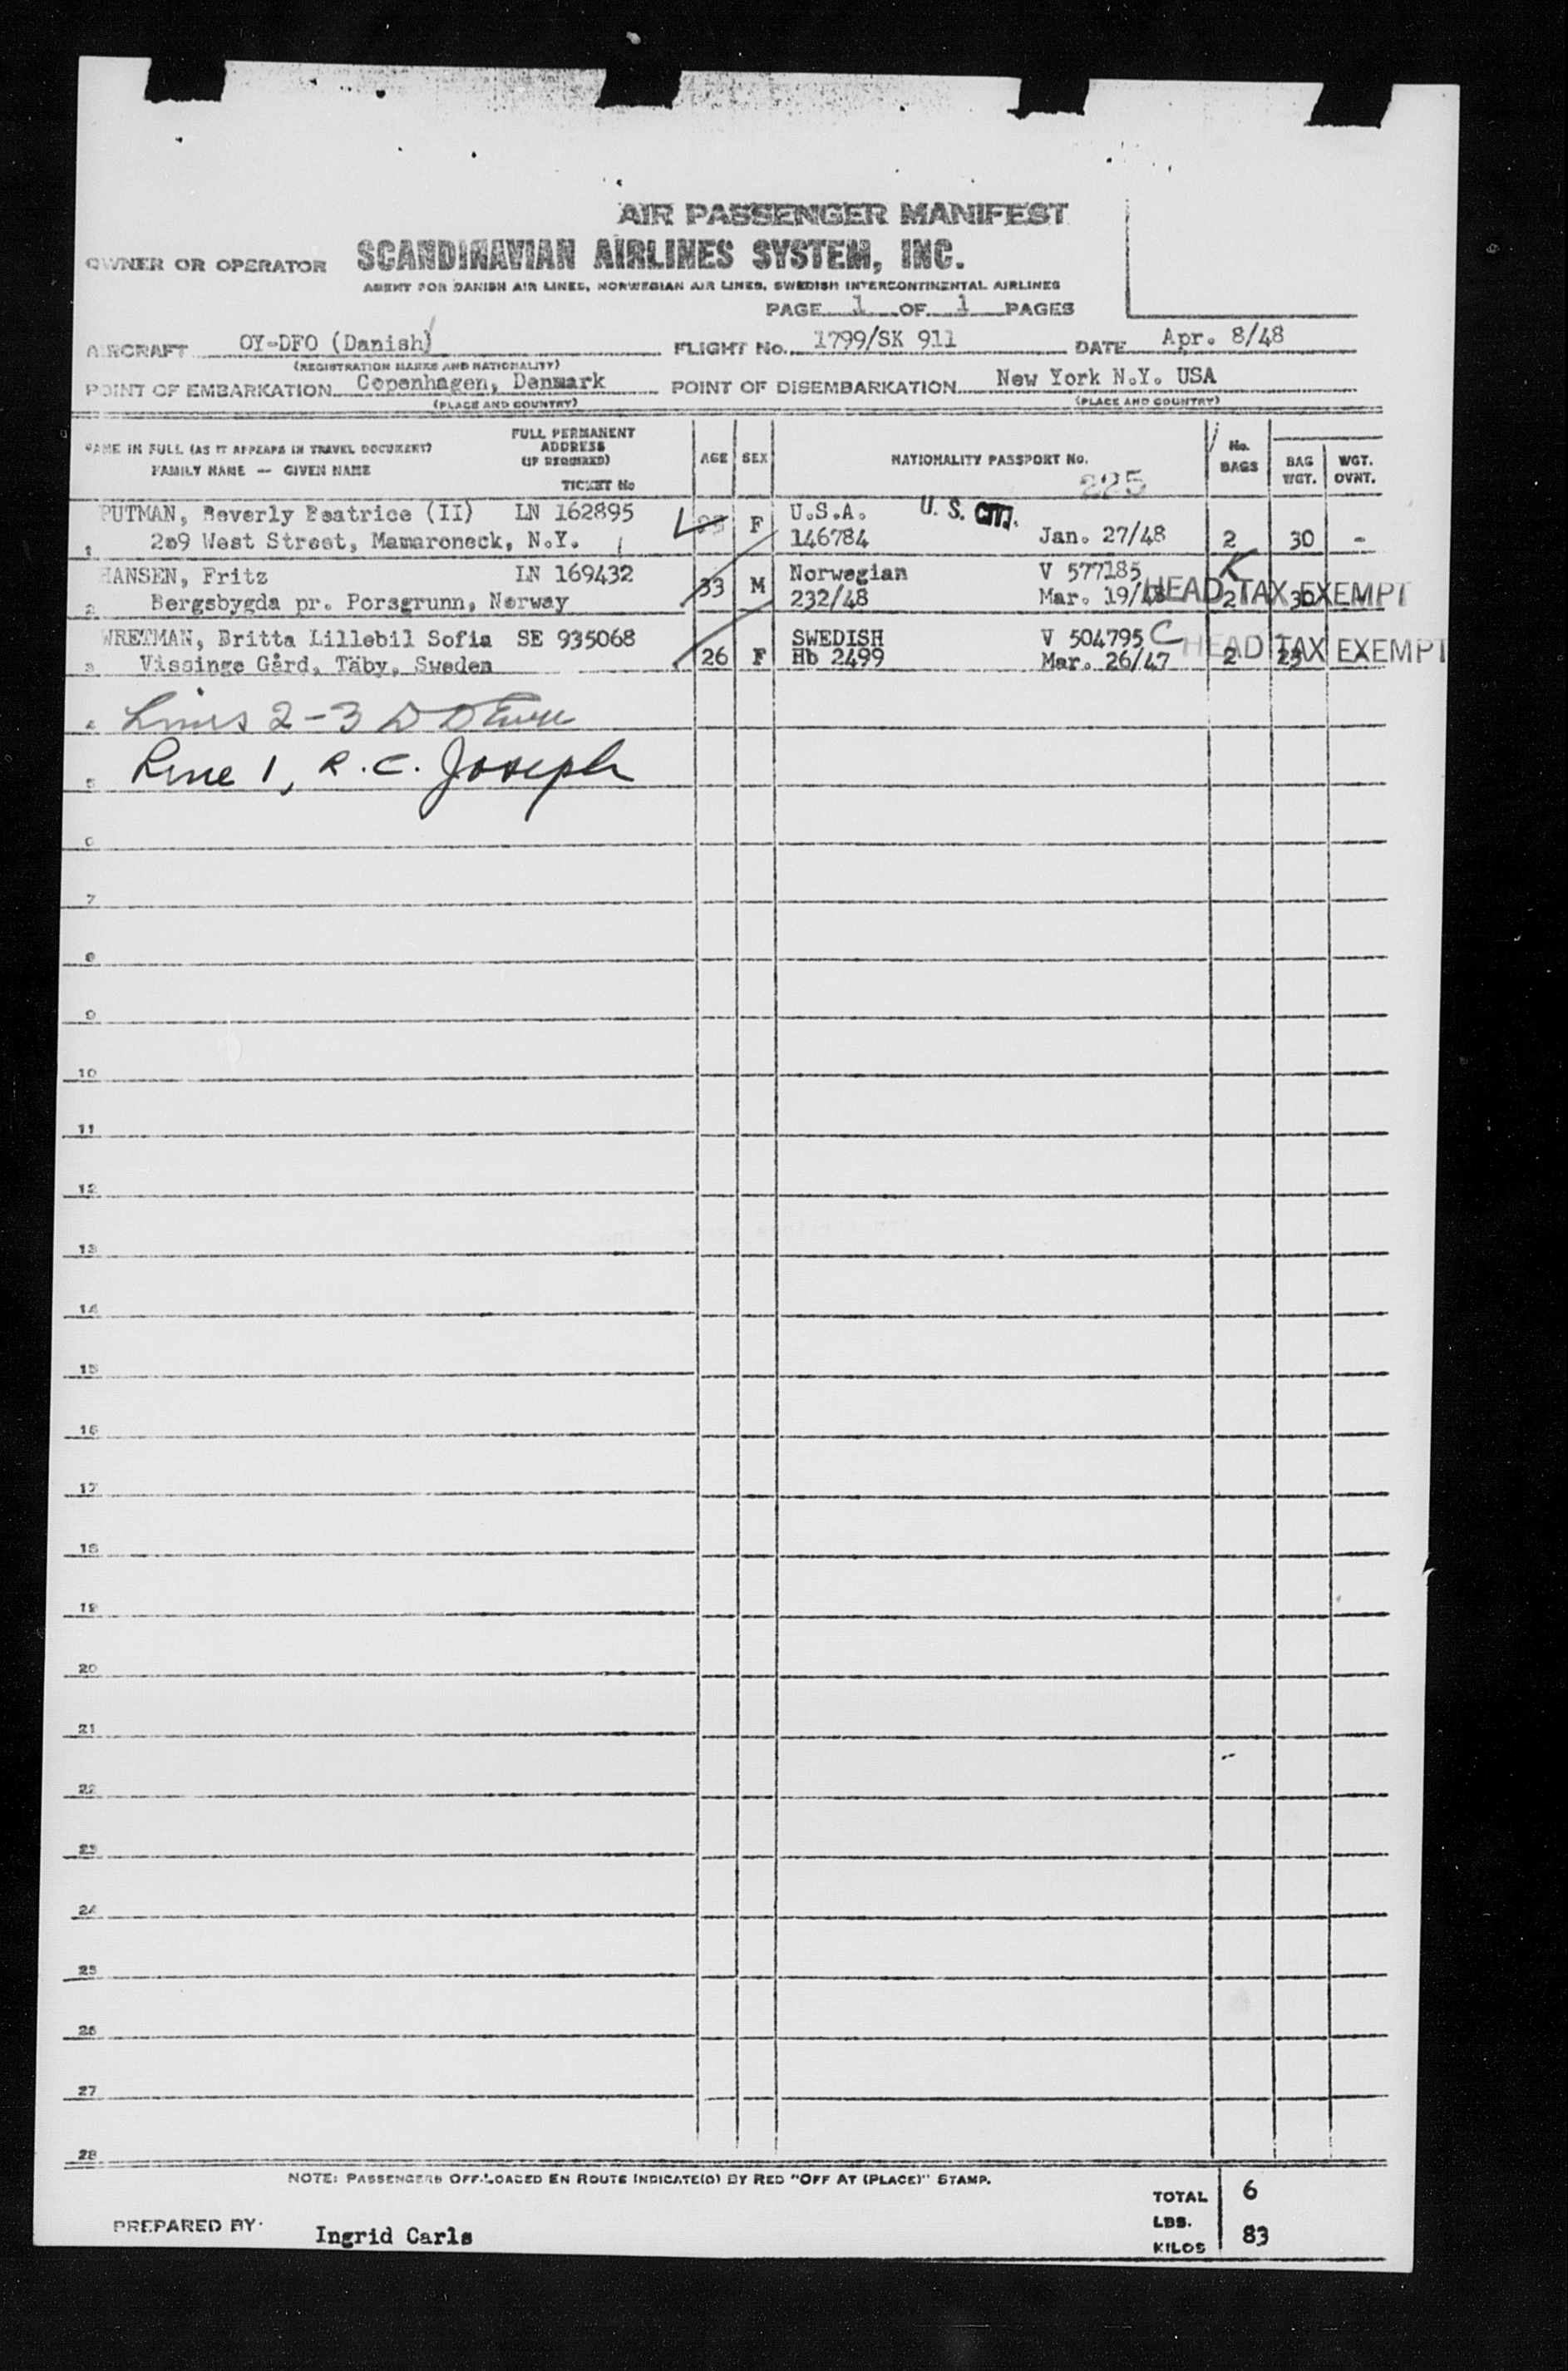 AIR PASSENGER MANIFEST
OWNER OR OPERATOR SCANDINAVIAN AIRLINES SYSTEM, INC.
AGENT FOR DANISH AIR LINES, NORWEGIAN AIR LINES, SWEDISH INTERCONTINENTAL AIRLINES
PAGE 1 OF 1 PAGES
AIRCRAFT OY-DFO (Danish) FLIGHT No. 1799/SK 911 DATE Apr. 8/48
(REGISTRATION MARKS AND NATIONALITY)
POINT OF EMBARKATION Copenhagen, Denmark POINT OF DISEMBARKATION New York N.Y. USA
(PLACE AND COUNTRY) (PLACE AND COUNTRY)
NAME IN FULL (AS IT APPEARS IN TRAVEL DOCUMENT) FULL PERMANENT ADDRESS (IF REQUIRED) AGE SEX NATIONALITY PASSPORT No. No. BAGS BAG WGT. WGT. OVNT.
FAMILY NAME — GIVEN NAME TICKET No 225
PUTMAN, Beverly Beatrice (II) LN 162895 F U.S.A. U. S. CIT.
1 209 West Street, Mamaroneck, N.Y. 146784 Jan. 27/48 2 30 -
HANSEN, Fritz LN 169432 33 M Norwegian V 577185 K
2 Bergsbygda pr. Porsgrunn, Norway 232/48 Mar. 19/48 HEAD TAX EXEMPT 2 30
WRETMAN, Britta Lillebil Sofia SE 935068 SWEDISH V 504795 C HEAD TAX EXEMPT
3 Vissinge Gård, Täby, Sweden 26 F Hb 2499 Mar. 26/47 2 23
4 Lines 2-3
5 Line 1, R.C. Joseph
6
7
8
9
10
11
12
13
14
15
16
17
18
19
20
21
22
23
24
25
26
27
28
NOTE: PASSENGERS OFF-LOADED EN ROUTE INDICATE(D) BY RED "OFF AT (PLACE)" STAMP.
TOTAL 6
PREPARED BY: Ingrid Carls
LBS.
KILOS 83